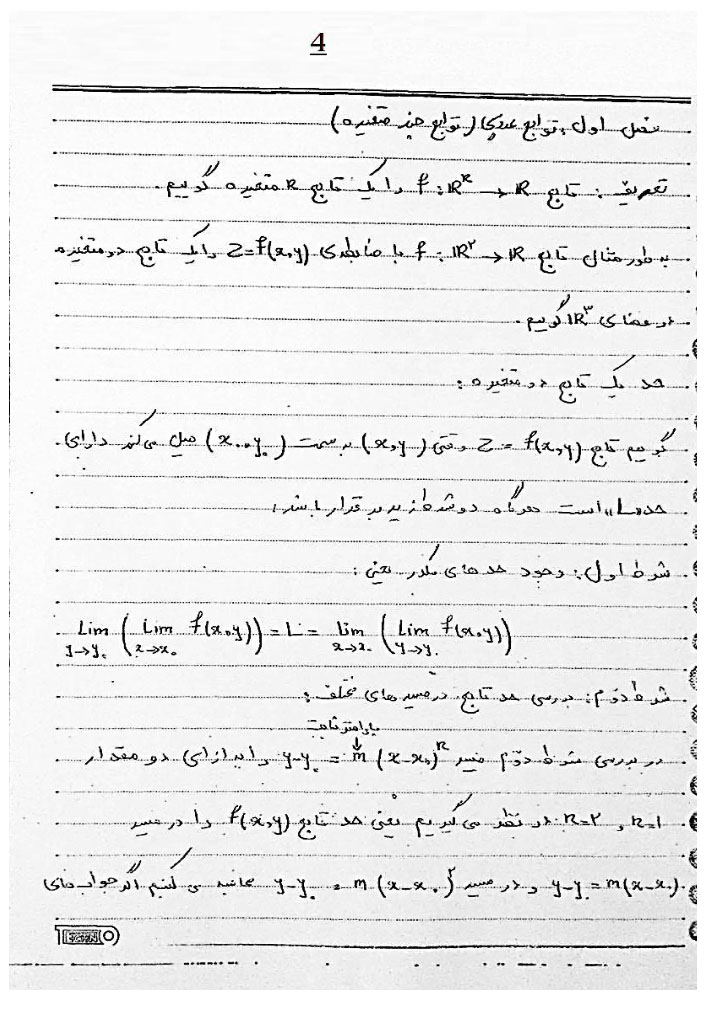 4
فصل اول: توابع عددی (توابع چند متغیره)
تعریف: تابع f: IRⁿ → IR را یک تابع n متغیره گوییم.
به طور مثال تابع f: IR² → IR با ضابطه‌ی Z=f(x,y) را یک تابع دو متغیره
در فضای IR³ گوییم.
حد یک تابع دو متغیره:
گوییم تابع Z = f(x,y) وقتی (x,y) به سمت (x₀,y₀) میل می‌کند دارای
حد «L» است هرگاه دو شرط زیر برقرار باشند:
شرط اول: وجود حدهای مکرر یعنی:
Lim y→y₀ (Lim x→x₀ f(x,y)) = L = lim x→x₀ (Lim y→y₀ f(x,y))
شرط دوّم: بررسی حد تابع در مسیرهای مختلف:
پارامتر ثابت
در بررسی شرط دوّم مسیر y-y₀ = m(x-x₀)ⁿ را به ازای دو مقدار
n=1 و n=2 در نظر می‌گیریم یعنی حد تابع f(x,y) را در مسیر
y-y₀ = m(x-x₀) و در مسیر y-y₀ = m(x-x₀)² محاسبه می‌کنیم اگر جواب‌های